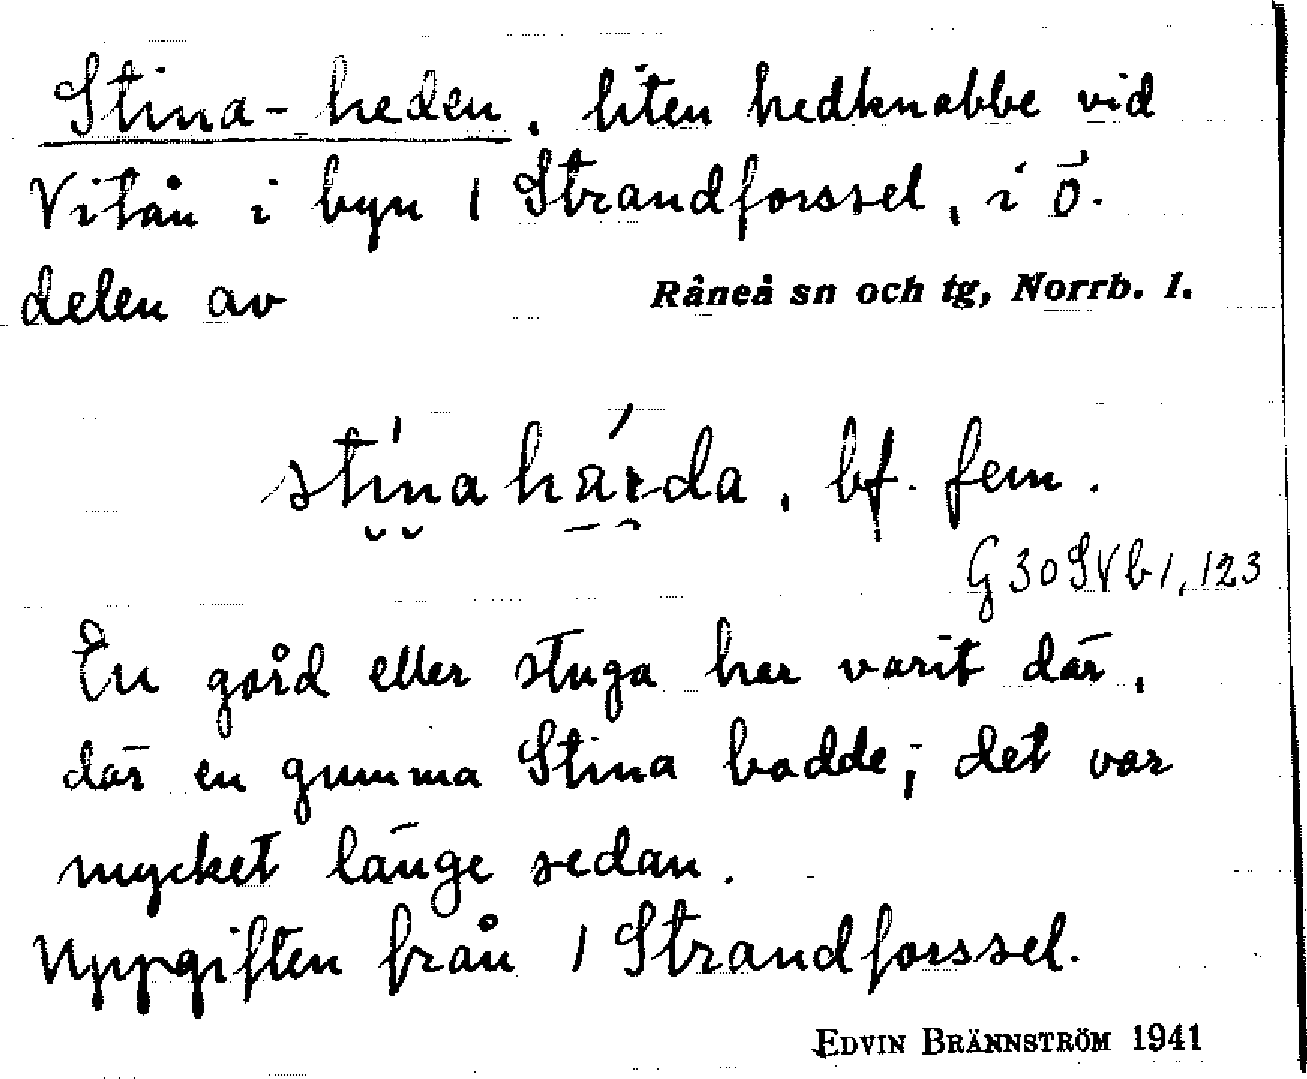 Stina-heden, liten hedknabbe vid
Vitån i byn 1 Strandforssel, i ö.
delen av Råneå sn och tg, Norrb. l.
stínahä́rda, bf. fem.
G 30 SVb 1, 123
En gård eller stuga har varit där,
där en gumma Stina bodde; det var
mycket länge sedan.
Uppgiften från 1 Strandforssel.
EDVIN BRÄNNSTRÖM 1941